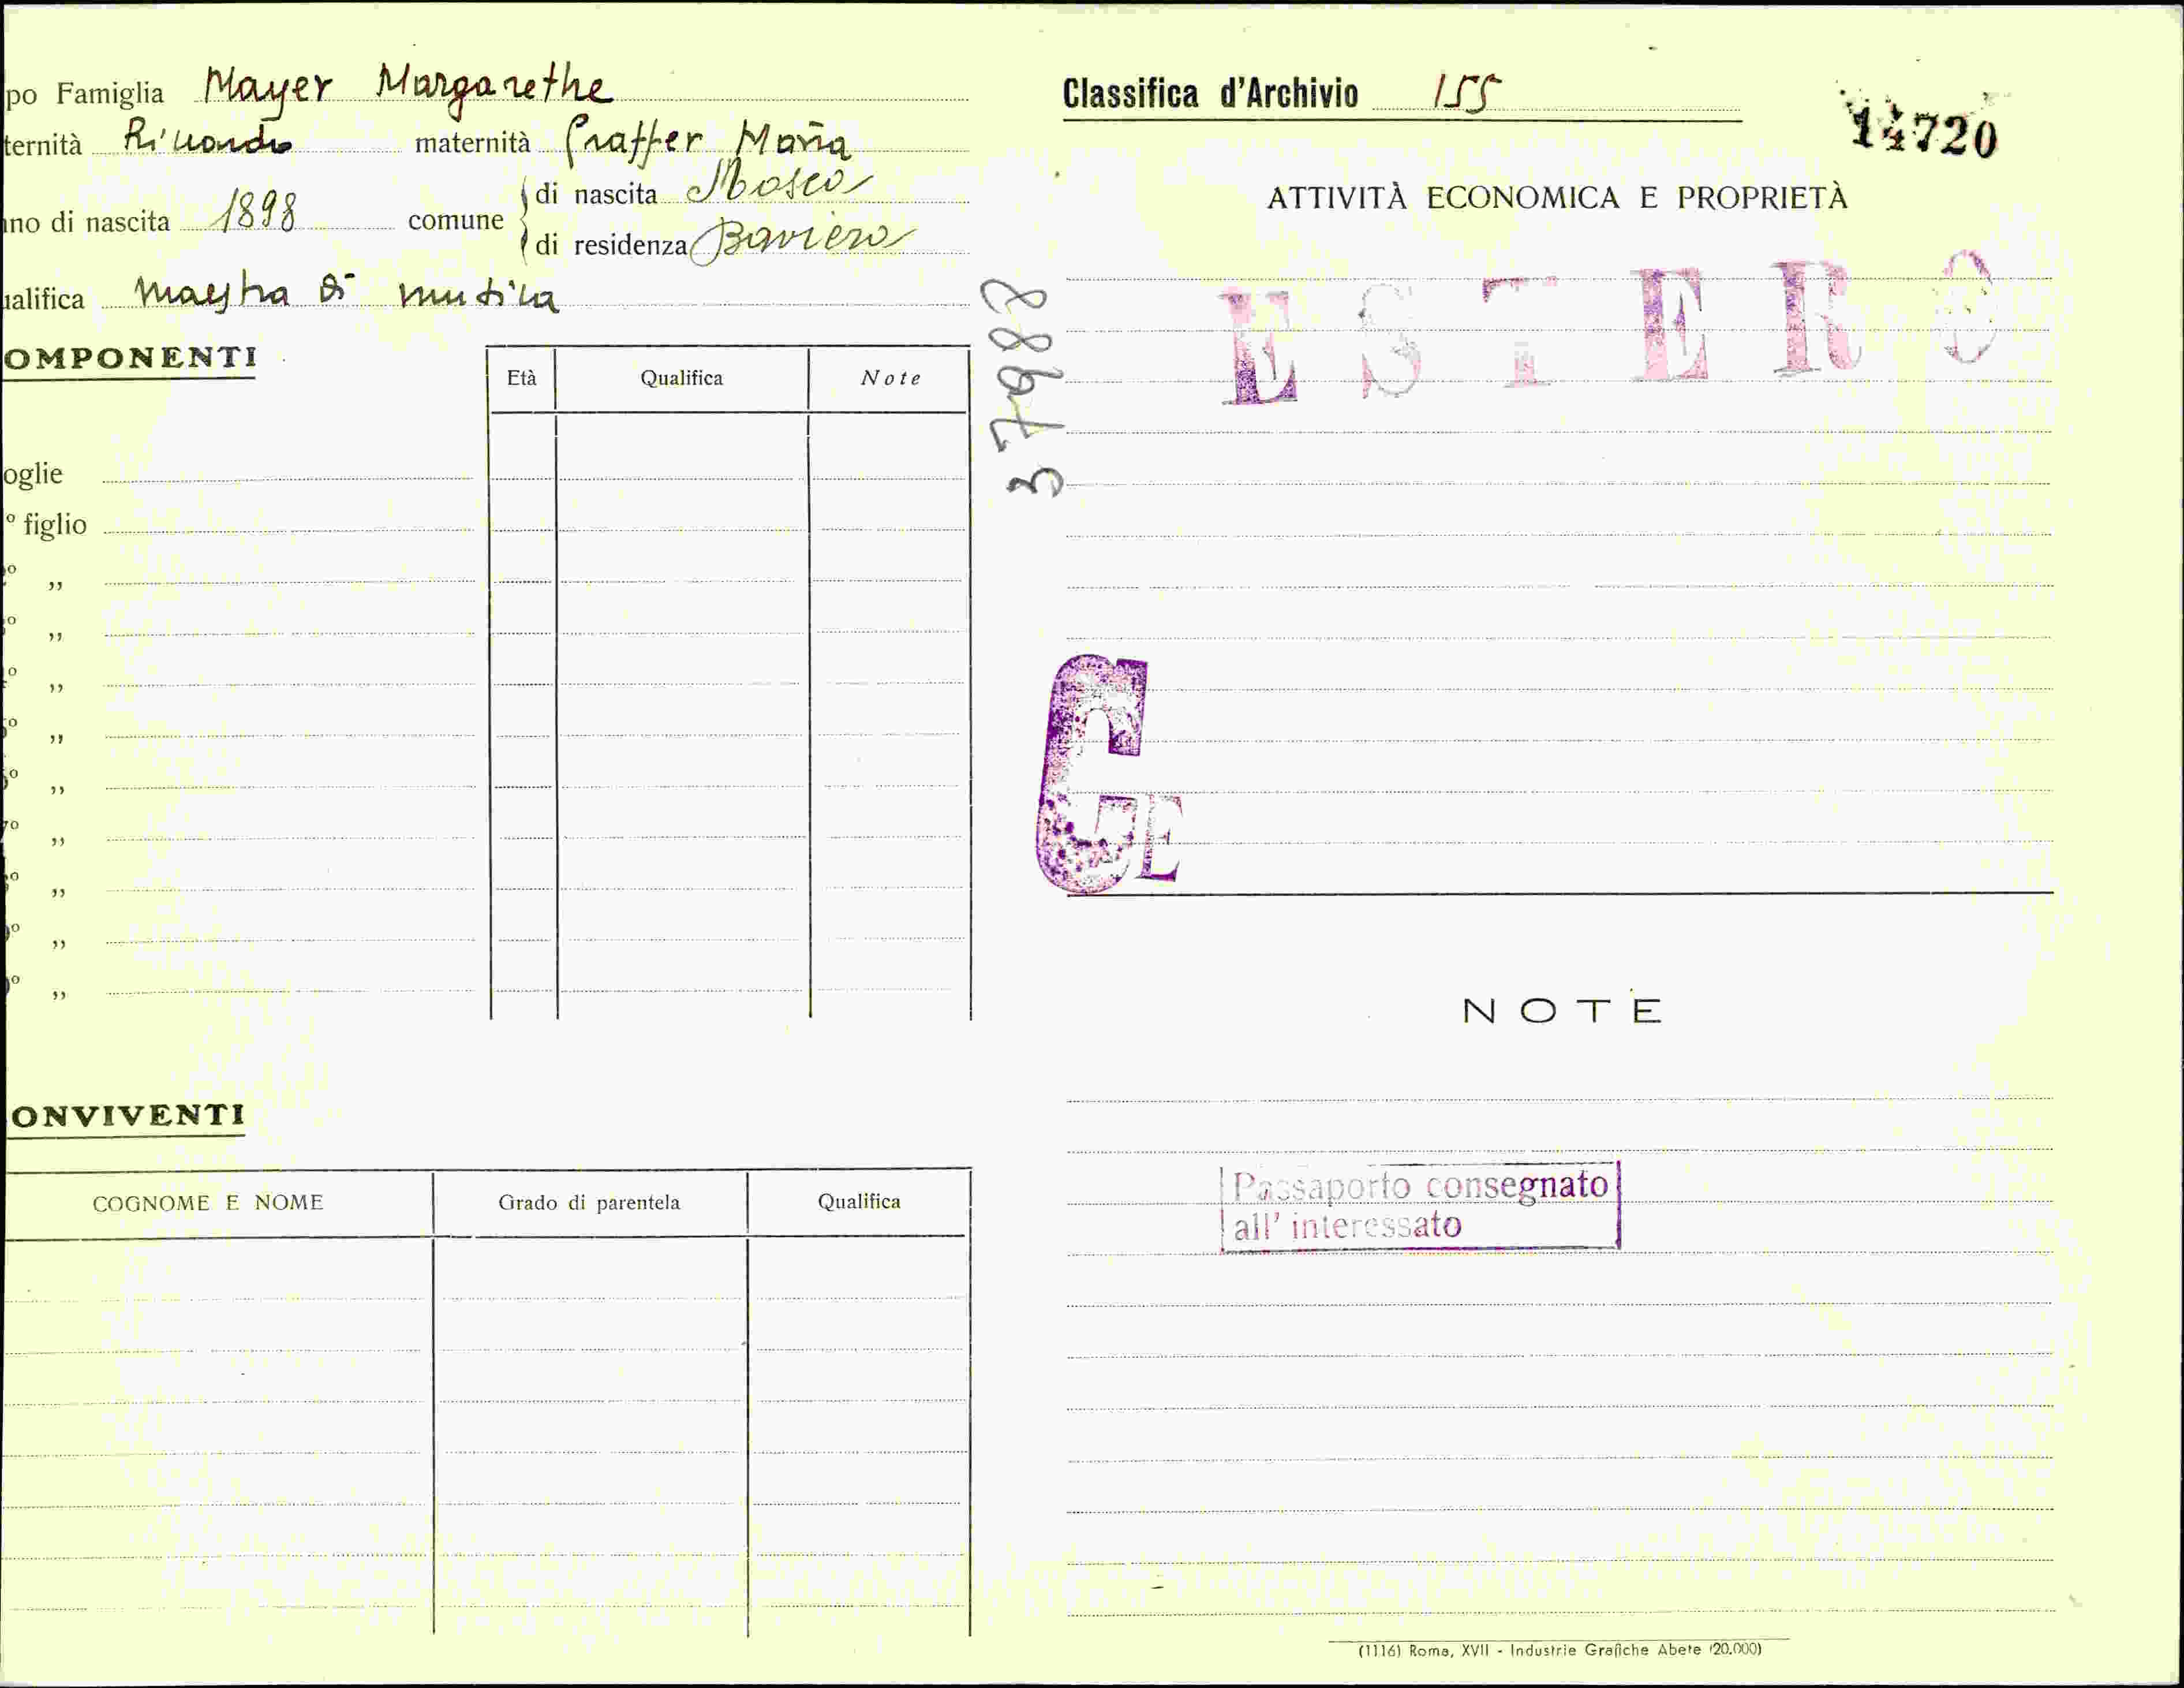 po Famiglia Mayer Margarethe
ternità Riccardo maternità Graffer Maria
no di nascita 1898 comune di nascita Mosca
di residenza Baviera
alifica maestra di musica
OMPONENTI
Età Qualifica Note
oglie
° figlio
° „
° „
° „
° „
° „
7° „
° „
° „
° „
ONVIVENTI
COGNOME E NOME Grado di parentela Qualifica
37988
Classifica d'Archivio 155
14720
ATTIVITÀ ECONOMICA E PROPRIETÀ
ESTERO
G E
NOTE
Passaporto consegnato
all' interessato
(1116) Roma, XVII - Industrie Grafiche Abete (20.000)